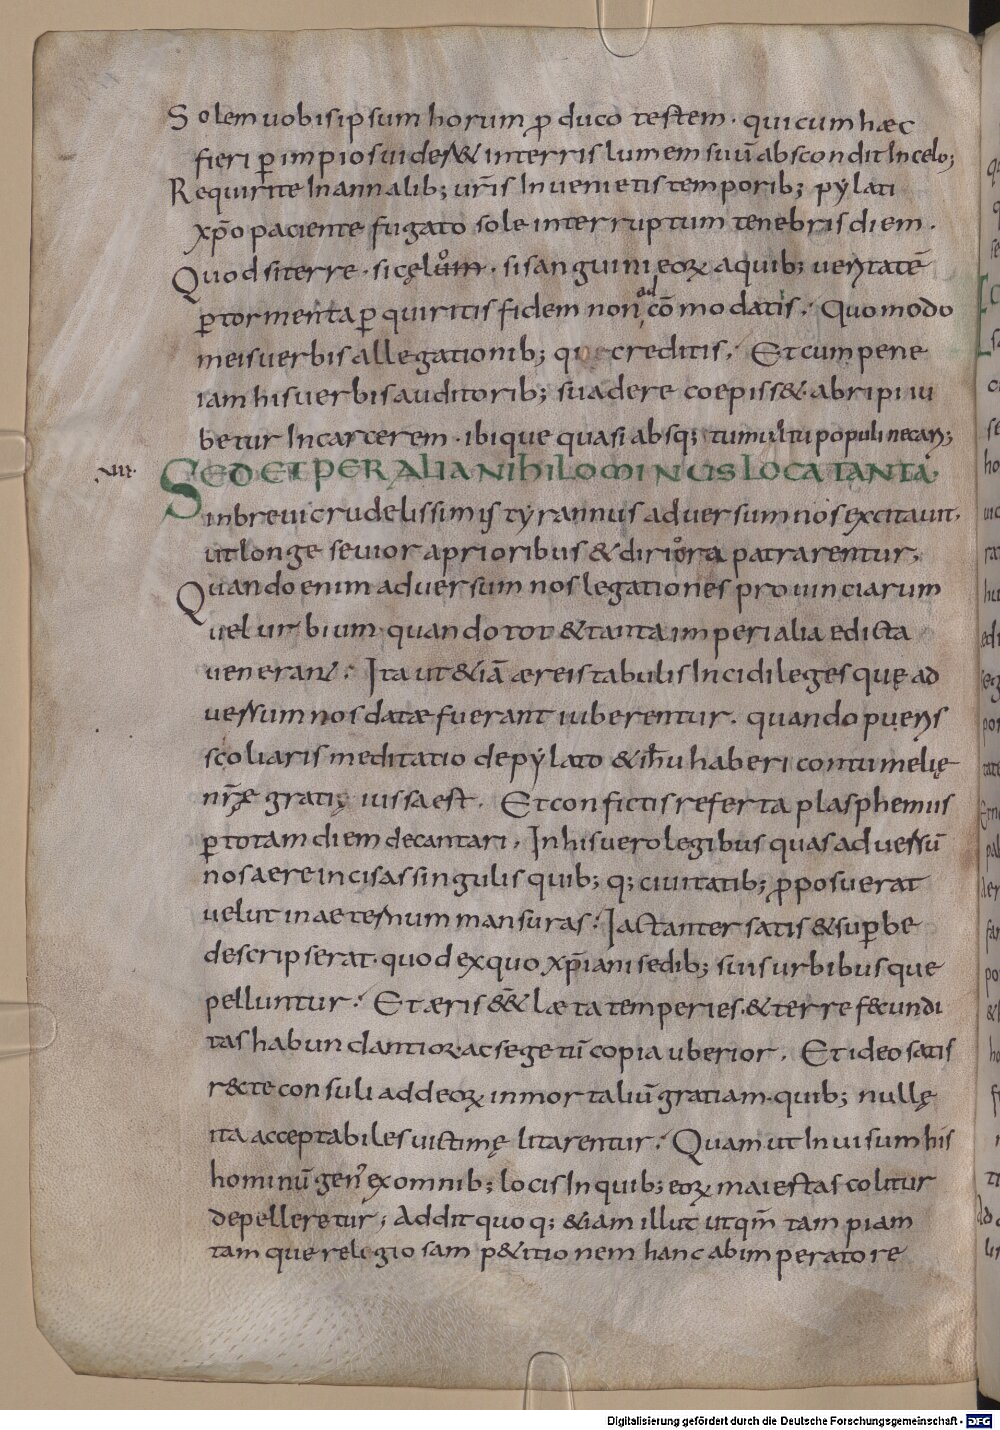 Solem uobis ipsum horum ꝓduco testem · qui cum hæc
fieri ꝑ impios uidess& in terris lumem suū abscondit In celo;
Requirite In annalib; ur̄is Inuenietis temporib; pẏlati
xp̄o paciente fugato sole interruptum tenebris diem ·
Quod si terre · si cęlum · si sanguini eoꝝ a quib; ueritatē
ꝑ tormenta ꝑquiritis fidem non ad cōmodatis ; Quomodo
meis uerbis allegationib; creditis ; Et cum pene
iam his uerbis auditorib; suadere coepiss& · abripi iu
betur In carcerem · ibique quasi absq; tumultu populi necari;
VIII·
SED ET PER ALIA NIHILOMINUS LOCA TANTA
in breui crudelissimus tẏrannus aduersum nos excitauit ·
ut longe seuiora prioribus & diriora patrarentur;
Quando enim aduersum nos legationes prouinciarum
uel urbium · quando tot & tanta imperialia edicta
uenerant ; Ita ut &iā æreis tabulis Incidi leges quę ad
uersum nos datæ fuerant iuberentur · quando pueris
scoliaris meditatio de pẏlato & ih̄u haberi contumelię
nr̄ę gratię iussa est · Et confictis referta plasphemiis
ꝑ totam diem decantari · In his uero legibus quas aduersū
nos aere incisas singulis quib; q; ciuitatib; ꝓposuerat
uelut in aeternum mansuras ; Iactanter satis & suꝑbe
descripserat · quod ex quo xp̄iani sedib; suis urbibusque
pelluntur ; Et æris & læta temperies · & terre fecundi
tas habundantior · ac segetū copia uberior · Et ideo satis
r&cte consuli ad deoꝝ inmortaliū gratiam · quib; nullę
ita acceptabiles uictimę litarentur ; Quam ut Inuisum his
hominū gen' ex omnib; locis In quib; eoꝝ maiestas colitur
depelleretur ; Addit quoq; &iam illut utqm̄ tam piam
tamque religiosam p&itionem hanc ab imperatore
Digitalisierung gefördert durch die Deutsche Forschungsgemeinschaft - DFG